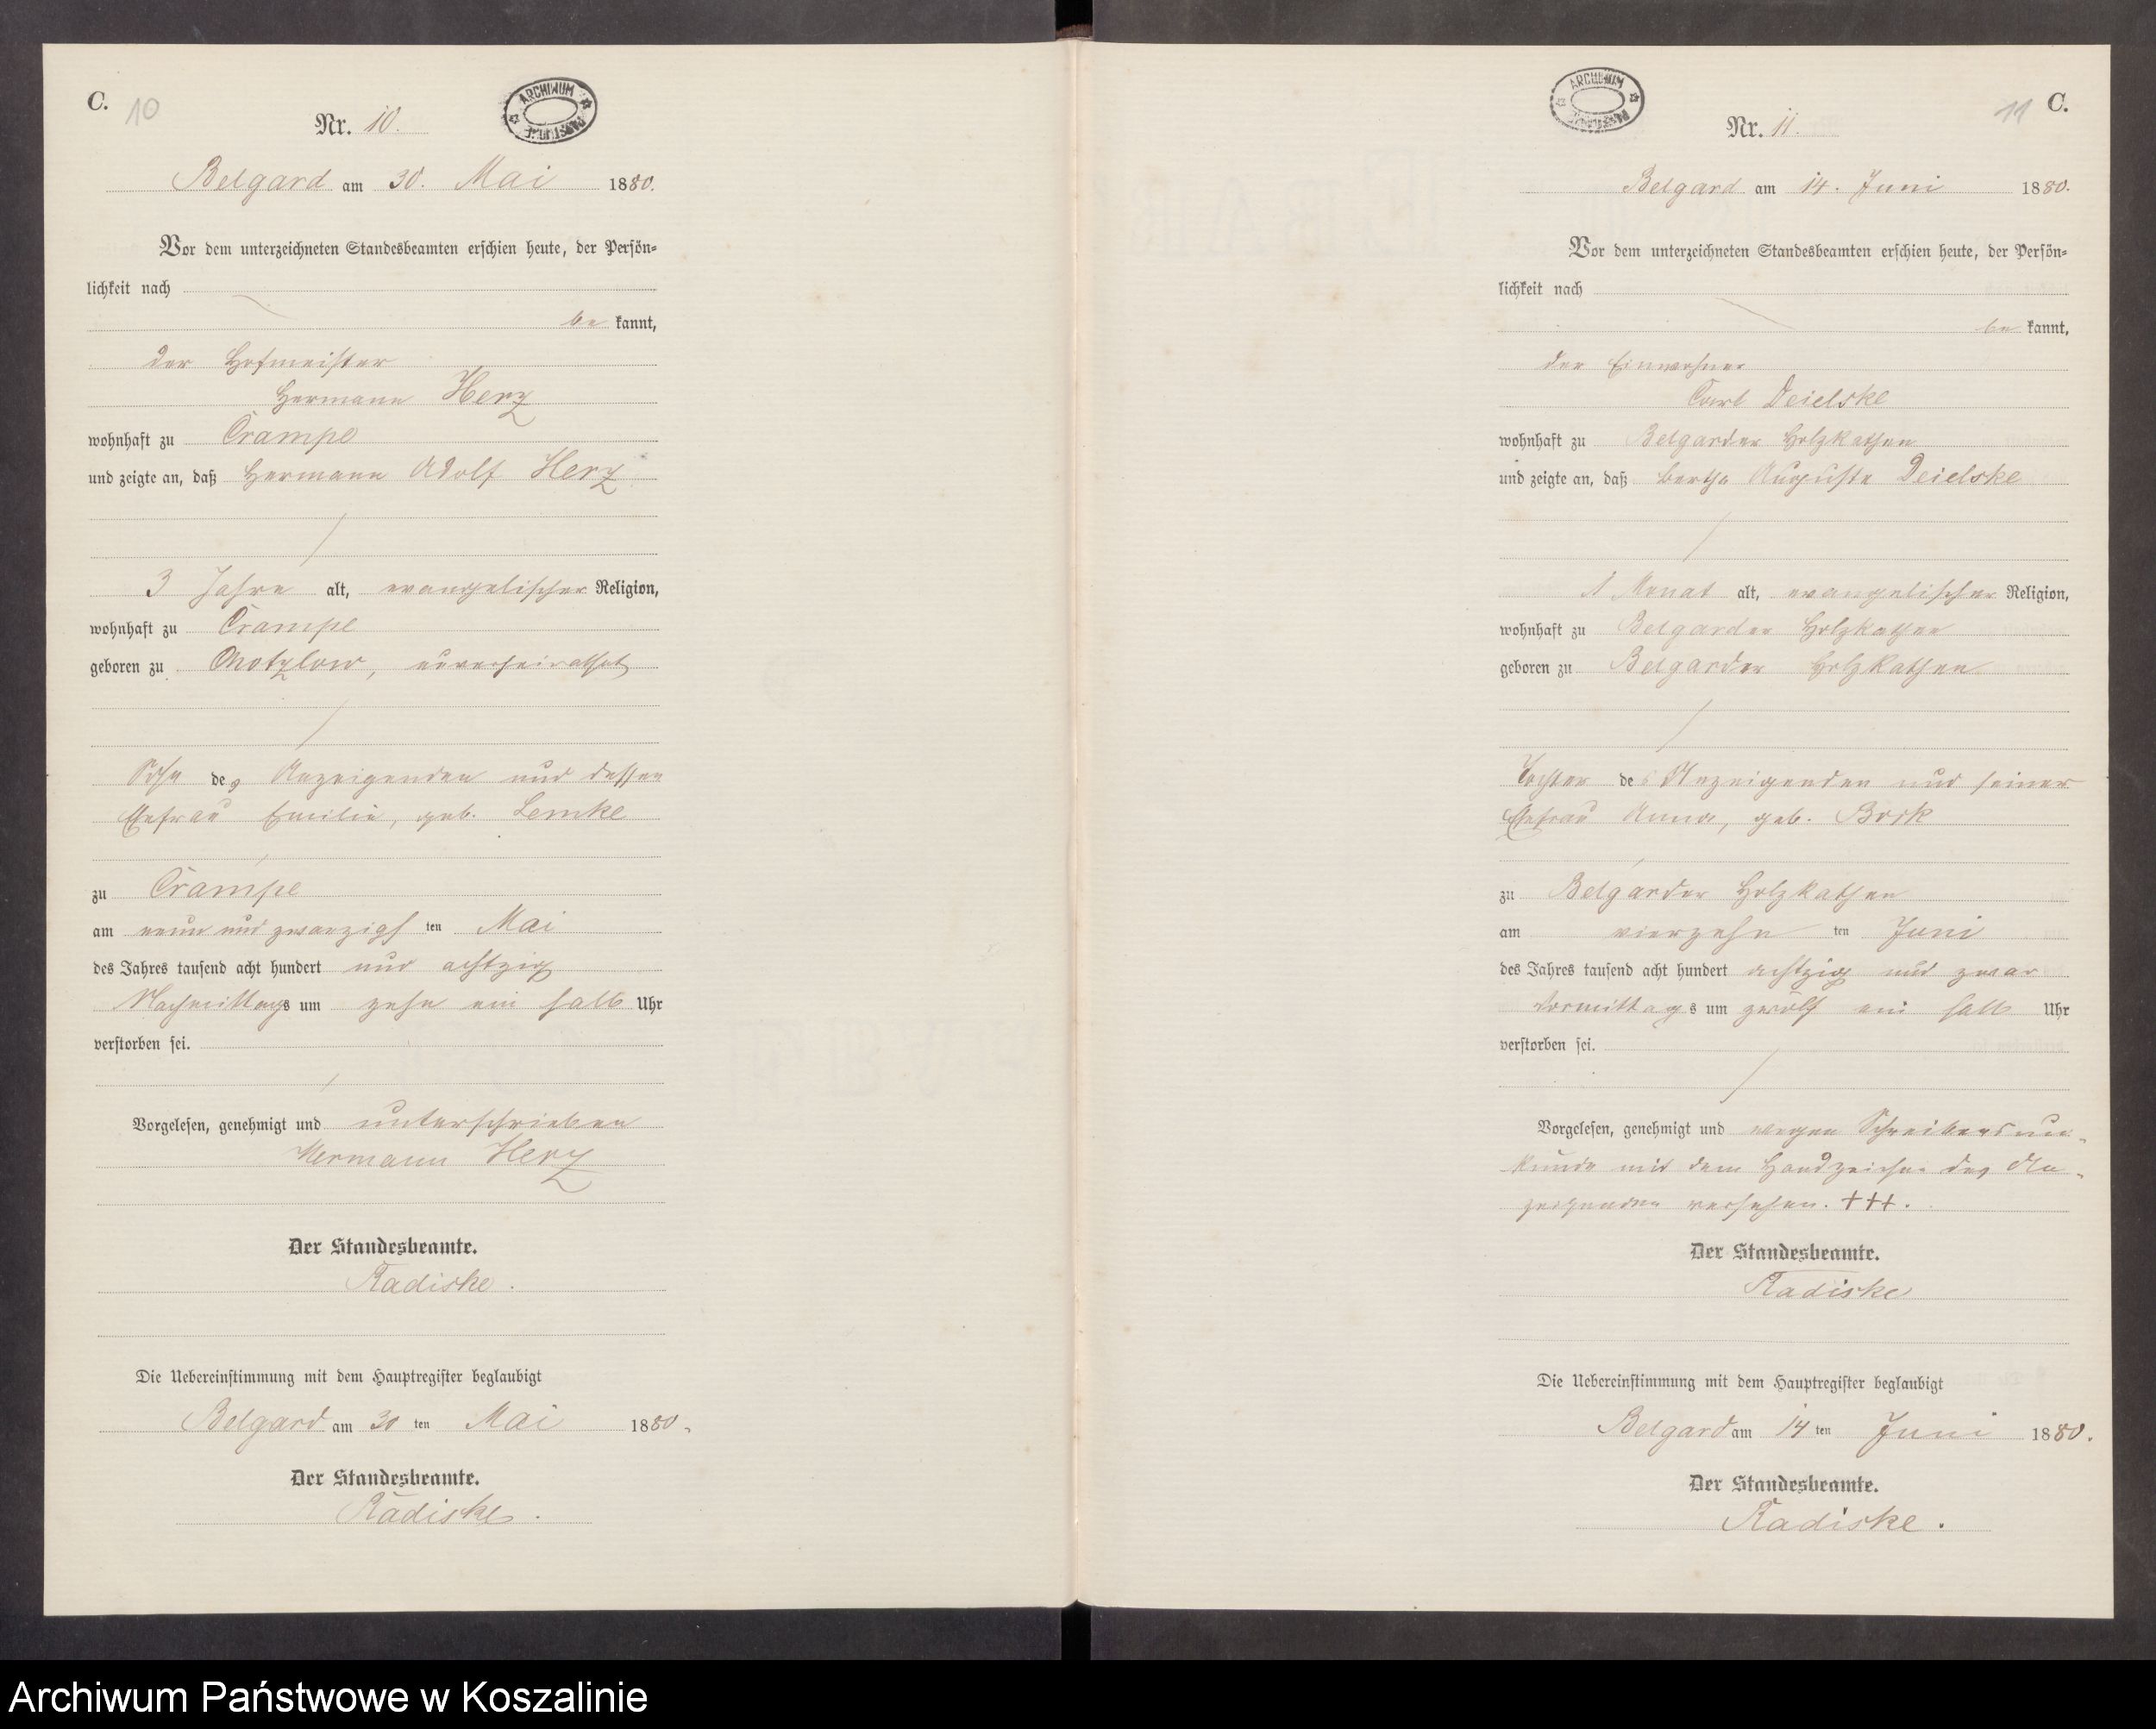 C.
10
Nr. 10.
ARCHIWUM PAŃSTWOWE
Belgard am 30. Mai 1880.
Vor dem unterzeichneten Standesbeamten erschien heute, der Persön-
lichkeit nach
be kannt,
der Hofmeister
Hermann Herz
wohnhaft zu Crampe
und zeigte an, daß Hermann Adolf Herz
3 Jahre alt, evangelischer Religion,
wohnhaft zu Crampe
geboren zu unverheirathet
Sohn des Anzeigenden und dessen
Ehefrau Emilie, geb. Lemke
zu Crampe
am neun und zwanzigsten Mai
des Jahres tausend acht hundert und achtzig
Nachmittags um zehn ein halb Uhr
verstorben sei.
Vorgelesen, genehmigt und unterschrieben
Hermann Herz
Der Standesbeamte.
Radiske.
Die Uebereinstimmung mit dem Hauptregister beglaubigt
Belgard am 30 ten Mai 1880.
Der Standesbeamte.
Radiske.
11 C.
Nr. 11.
ARCHIWUM PAŃSTWOWE
Belgard am 14. Juni 1880.
Vor dem unterzeichneten Standesbeamten erschien heute, der Persön-
lichkeit nach
be kannt,
der Einwohner
Carl Deielske
wohnhaft zu Belgarder Holzkathen
und zeigte an, daß Bertha Auguste Deielske
1 Monat alt, evangelischer Religion,
wohnhaft zu Belgarder Holzkathen
geboren zu Belgarder Holzkathen
Tochter des Anzeigenden und seiner
Ehefrau Anna, geb. Bork
zu Belgarder Holzkathen
am vierzehn ten Juni
des Jahres tausend acht hundert achtzig und zwar
Vormittags um zwölf ein halb Uhr
verstorben sei.
Vorgelesen, genehmigt und wegen Schreibensun-
kunde mit dem Handzeichen des An-
zeigenden versehen. +++.
Der Standesbeamte.
Radiske
Die Uebereinstimmung mit dem Hauptregister beglaubigt
Belgard am 14 ten Juni 1880.
Der Standesbeamte.
Radiske.
Archiwum Państwowe w Koszalinie